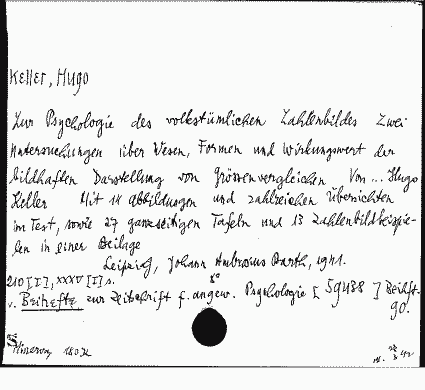 Keller, Hugo
Zur Psychologie des volkstümlichen Zahlenbildes Zwei
Untersuchungen über Wesen, Formen und Wirkungswert der
bildhaften Darstellung von Grössenvergleichen Von ... Hugo
Keller Mit 14 Abbildungen und zahlreichen Übersichten
im Text, sowie 27 ganzseitigen Tafeln und 13 Zahlenbildbeispie-
len in einer Beilage
Leipzig, Johann Ambrosius Barth, 1941.
210 [I], XXXV [I] s. 8°
v. Beihefte zur Zeitschrift f. angew. Psychologie [59488] Beiheft.
90.
Minerva 18.0